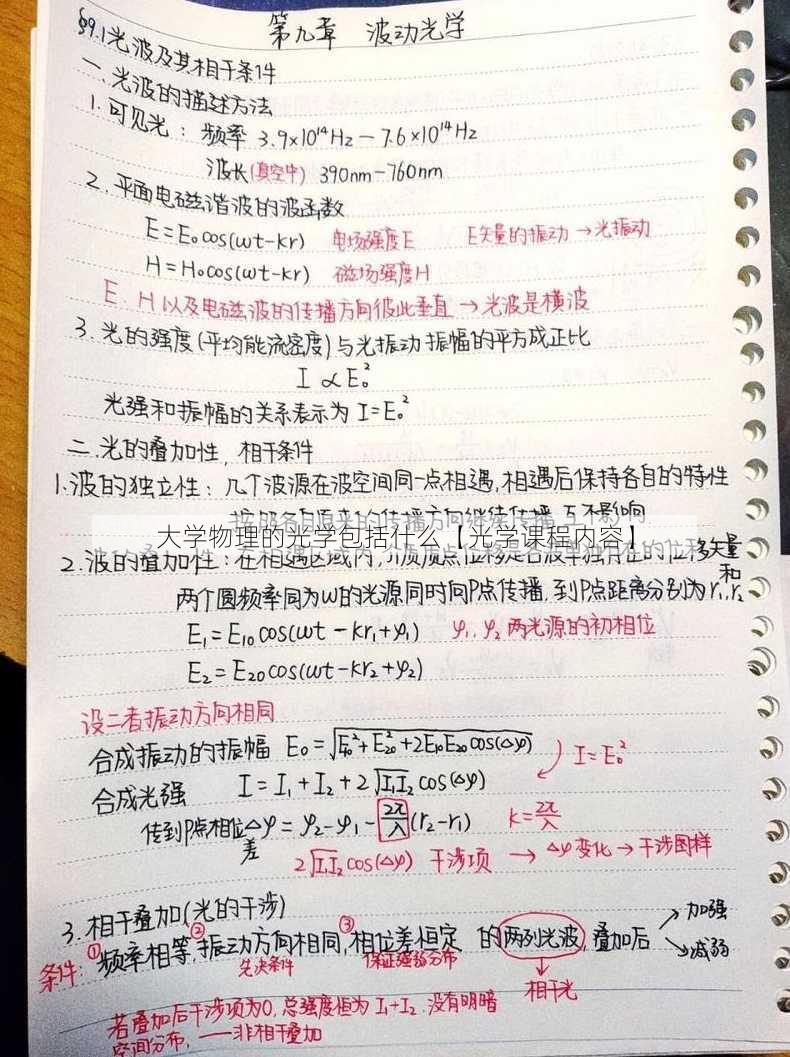 第九章 波动光学
§9.1光波及其相干条件
一.光波的描述方法
1.可见光：频率 3.9×10¹⁴Hz－7.6×10¹⁴Hz
波长(真空中) 390nm－760nm
2.平面电磁谐波的波函数
E=E₀cos(ωt-kr) 电场强度E E矢量的振动→光振动
H=H₀cos(ωt-kr) 磁场强度H
E、H以及电磁波的传播方向彼此垂直→光波是横波
3.光的强度(平均能流密度)与光振动振幅的平方成正比
I∝E₀²
光强和振幅的关系表示为I=E₀²
二.光的叠加性，相干条件
1.波的独立性：几个波源在波空间同一点相遇，相遇后保持各自的特性
按照各自原来的传播方向继续传播 互不影响
大学物理的光学包括什么【光学课程内容】
2.波的叠加性：在相遇区域内，介质质点位移是各波单独存在的位移矢量和
两个圆频率同为ω的光源同时向P点传播，到P点距离分别为r₁,r₂
E₁=E₁₀cos(ωt-kr₁+φ₁) φ₁.φ₂两光源的初相位
E₂=E₂₀cos(ωt-kr₂+φ₂)
设二者振动方向相同
合成振动的振幅 E₀=√(E₁₀²+E₂₀²+2E₁₀E₂₀cos(Δφ)) I=E₀²
合成光强 I=I₁+I₂+2√(I₁I₂)cos(Δφ)
传到P点相位差Δφ=φ₂-φ₁-2π/λ(r₂-r₁) k=2π/λ
2√(I₁I₂)cos(Δφ) 干涉项→Δφ变化→干涉图样
3.相干叠加(光的干涉)
条件：①频率相等，②振动方向相同，③相位差恒定 的两列光波，叠加后 ↗加强 ↘减弱
先决条件 保证强弱分布 ↓相干光
若叠加后干涉项为0，总强度恒为I₁+I₂.没有明暗
空间分布，——非相干叠加